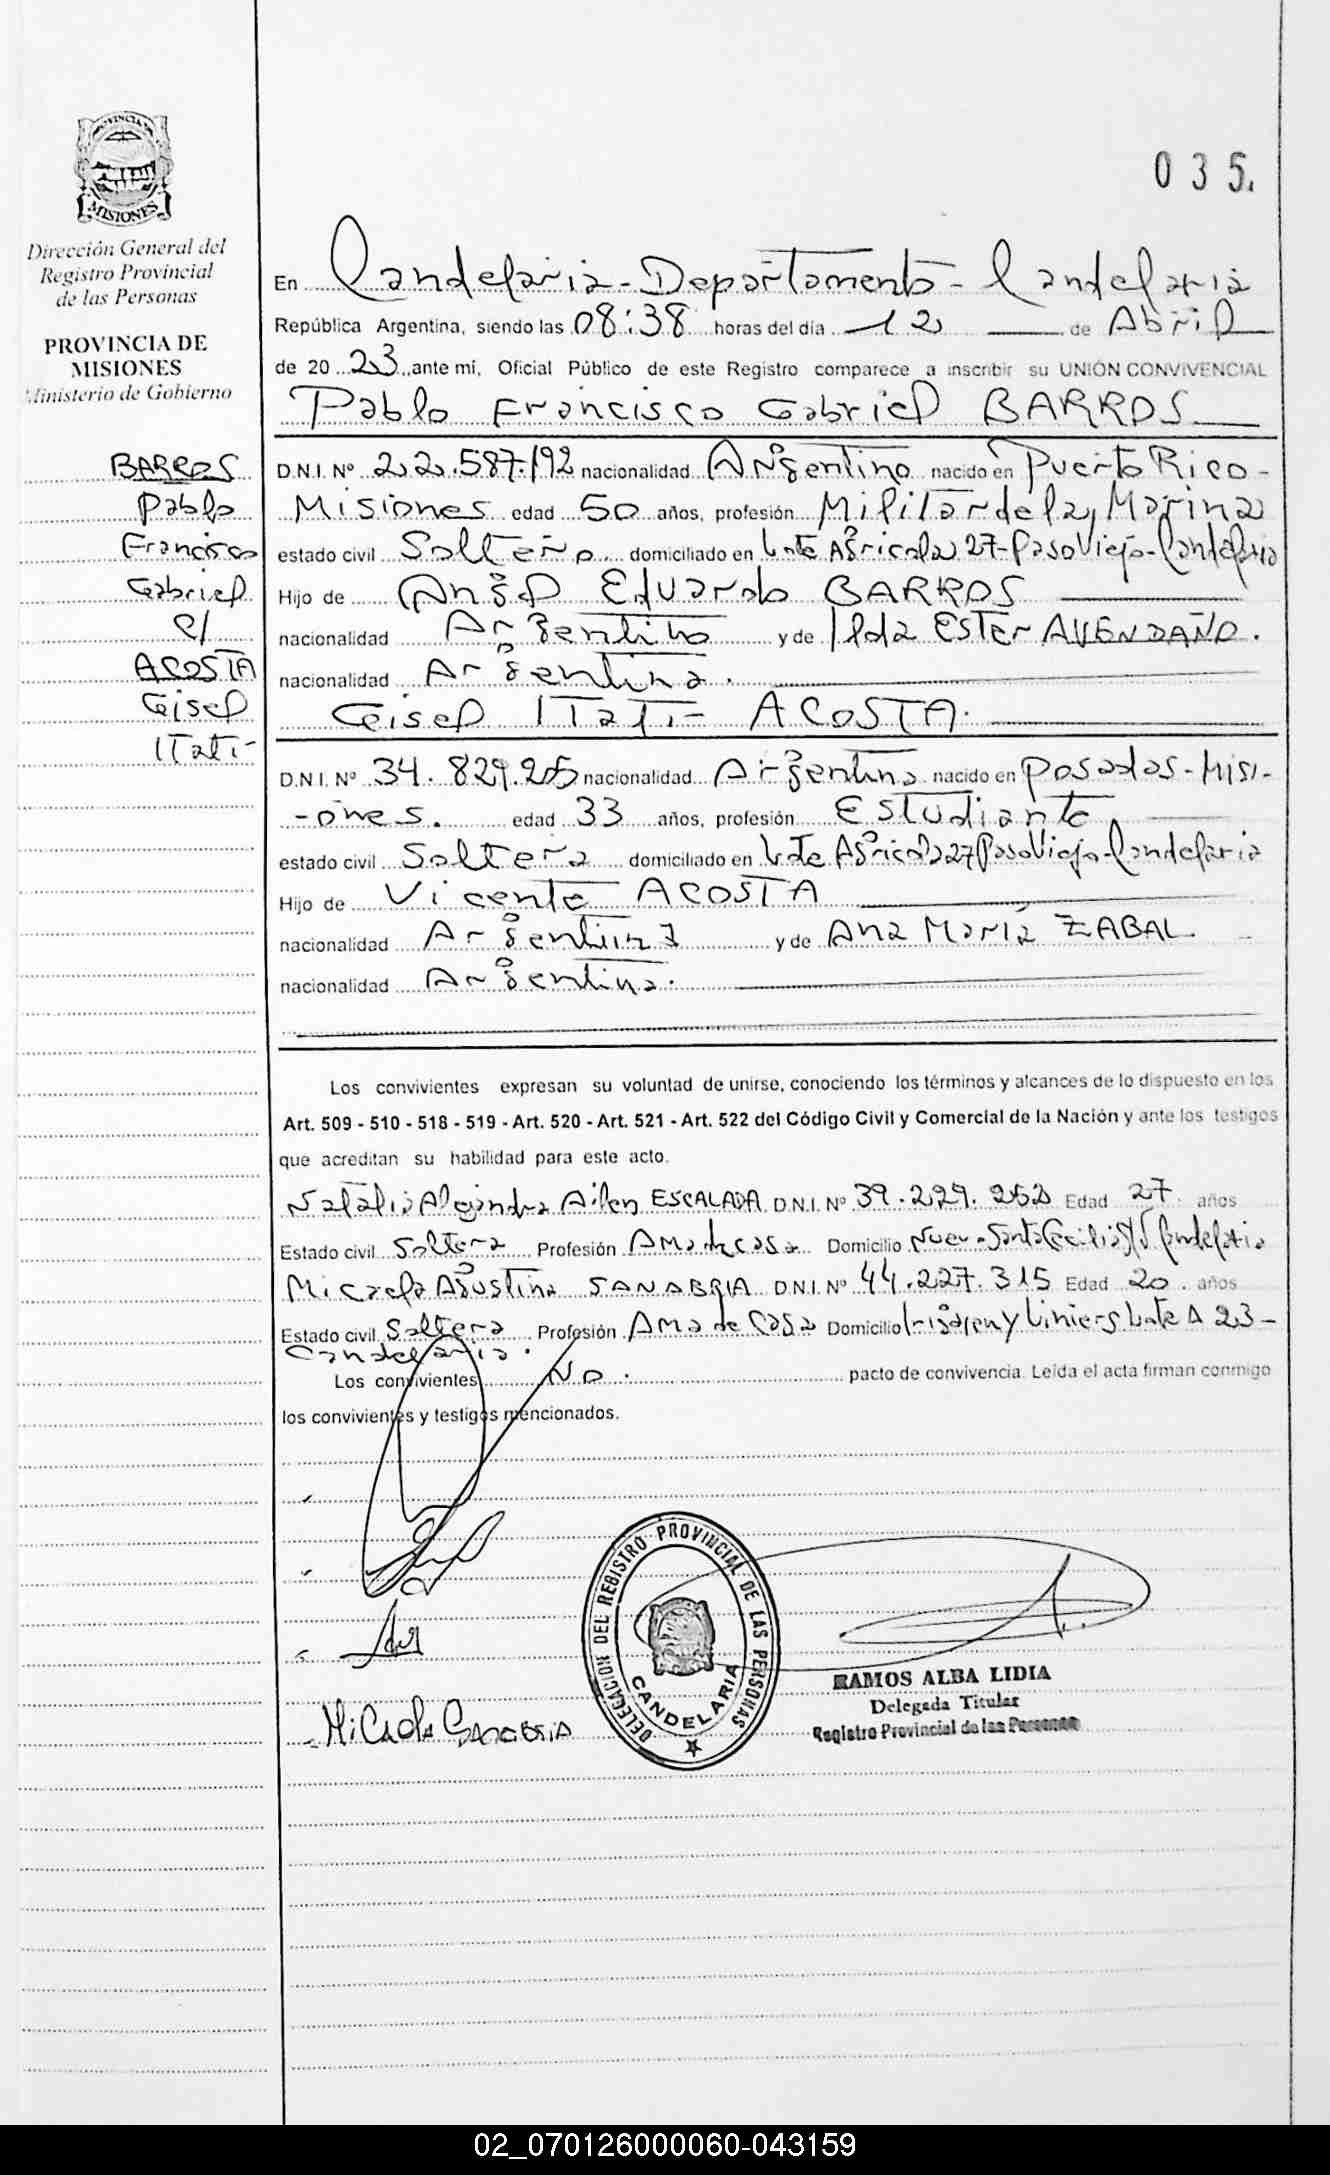 PROVINCIA DE
MISIONES
Dirección General del
Registro Provincial
de las Personas
PROVINCIA DE
MISIONES
Ministerio de Gobierno
BARROS
Pablo
Francisco
Gabriel
c/
ACOSTA
Gisel
Itatí
035.
En Candelaria - Departamento - Candelaria
República Argentina, siendo las 08:38 horas del día 12 de Abril
de 2023 ante mí, Oficial Público de este Registro comparece a inscribir su UNIÓN CONVIVENCIAL
Pablo Francisco Gabriel BARROS
D.N.I. Nº 22.587.192 nacionalidad Argentino nacido en Puerto Rico -
Misiones edad 50 años, profesión Militar de la Marina
estado civil Soltero domiciliado en Lote Agricola 27 - Paso Viejo - Candelaria
Hijo de Angel Eduardo BARROS
nacionalidad Argentino y de Ilda Ester AVENDAÑO.
nacionalidad Argentina.
Gisel Itatí ACOSTA.
D.N.I. Nº 34.829.205 nacionalidad Argentina nacido en Posadas - Misi-
-ones. edad 33 años, profesión Estudiante
estado civil Soltera domiciliado en Lote Agricola 27 Paso Viejo - Candelaria
Hijo de Vicente ACOSTA
nacionalidad Argentina y de Ana María ZABAL
nacionalidad Argentina.
Los convivientes expresan su voluntad de unirse, conociendo los términos y alcances de lo dispuesto en los
Art. 509 - 510 - 518 - 519 - Art. 520 - Art. 521 - Art. 522 del Código Civil y Comercial de la Nación y ante los testigos
que acreditan su habilidad para este acto.
Natalia Alejandra Ailen ESCALADA D.N.I. Nº 39.229.252 Edad 27 años
Estado civil Soltera Profesión Ama de casa Domicilio Nueva Santa Cecilia S/N Candelaria
Micaela Agustina SANABRIA D.N.I. Nº 44.227.315 Edad 20 años
Estado civil Soltera Profesión Ama de Casa Domicilio Irigoyen y Liniers Lote A 23 -
Candelaria.
Los convivientes No. pacto de convivencia. Leída el acta firman conmigo
los convivientes y testigos mencionados.
Micaela Sanabria
DELEGACION DEL REGISTRO PROVINCIAL DE LAS PERSONAS
CANDELARIA
RAMOS ALBA LIDIA
Delegada Titular
Registro Provincial de las Personas
02_070126000060-043159